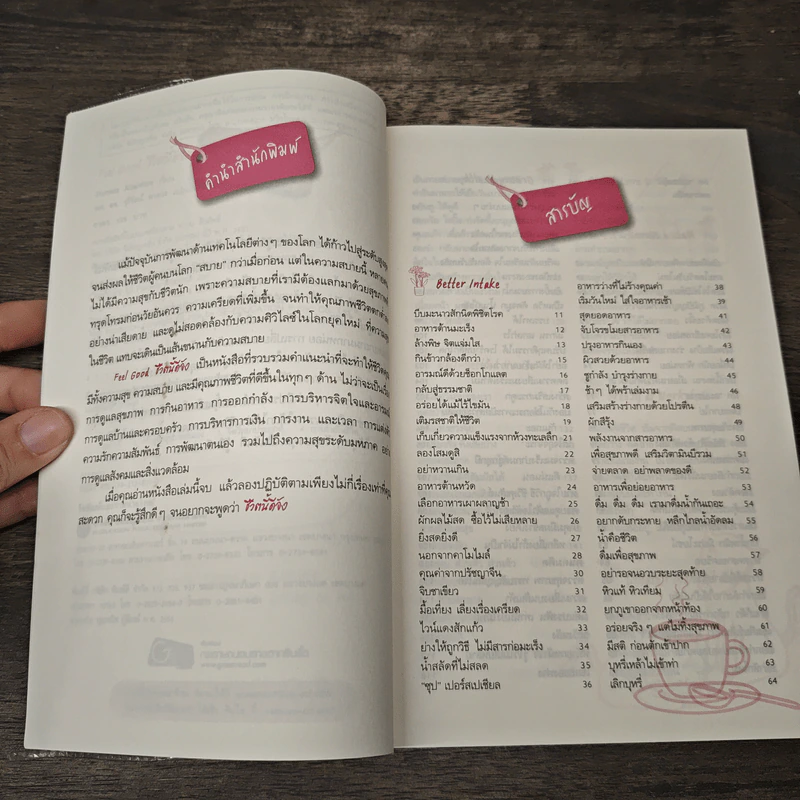 คำนำสำนักพิมพ์
แม้ปัจจุบันการพัฒนาด้านเทคโนโลยีต่างๆ ของโลก ได้ก้าวไปสู่ระดับสูงสุด
จนส่งผลให้ชีวิตผู้คนบนโลก “สบาย” กว่าเมื่อก่อน แต่ในความสบายนี้
ไม่ได้มีความสุขกับชีวิตนัก เพราะความสบายที่เรามีต้องแลกมาด้วยสุขภาพที่
ทรุดโทรมก่อนวัยอันควร ความเครียดที่เพิ่มขึ้น จนทำให้คุณภาพชีวิตตกต่ำ
อย่างน่าเสียดาย และดูไม่สอดคล้องกับความศิวิไลซ์ในโลกยุคใหม่ ที่ความสุข
ในชีวิต แทบจะเดินเป็นเส้นขนานกับความสบาย
Feel Good ชีวิตนี้ดีจัง เป็นหนังสือที่รวบรวมคำแนะนำที่จะทำให้ชีวิตคุณ
มีทั้งความสุข ความสบาย และมีคุณภาพชีวิตที่ดีขึ้นในทุกๆ ด้าน ไม่ว่าจะเป็นเรื่อง
การดูแลสุขภาพ การกินอาหาร การออกกำลัง การบริหารจิตใจและอารมณ์
การดูแลบ้านและครอบครัว การบริหารการเงิน การงาน และเวลา การแต่งตัว
ความรักความสัมพันธ์ การพัฒนาตนเอง รวมไปถึงความสุขระดับมหภาค อย่าง
การดูแลสังคมและสิ่งแวดล้อม
เมื่อคุณอ่านหนังสือเล่มนี้จบ แล้วลองปฏิบัติตามเพียงไม่กี่เรื่องเท่าที่คุณ
สะดวก คุณก็จะรู้สึกดีๆ จนอยากจะพูดว่า ชีวิตนี้ดีจัง
สารบัญ
Better Intake
บีบมะนาวสักนิดพิชิตโรค 11
อาหารต้านมะเร็ง 12
ล้างพิษ จิตแจ่มใส 13
กินข้าวกล้องดีกว่า 14
อารมณ์ดีด้วยช็อกโกแลต 16
กลับสู่ธรรมชาติ 17
อร่อยได้แม้ไร้ไขมัน 18
เติมรสชาติให้ชีวิต 19
เก็บเกี่ยวความแข็งแรงจากห้วงทะเลลึก 21
ลองโสมดูสิ 22
อย่าหวานเกิน 23
อาหารต้านหวัด 24
เลือกอาหารเผาผลาญช้า 25
ผักผลไม้สด ซื้อไว้ไม่เสียหลาย 26
ยิ่งสดยิ่งดี 27
นอกจากคาโมไมล์ 28
คุณค่าจากปรัชญาจีน 30
จิบชาเขียว 31
มื้อเที่ยง เลี่ยงเรื่องเครียด 32
ไวน์แดงสักแก้ว 33
ย่างให้ถูกวิธี ไม่มีสารก่อมะเร็ง 34
น้ำสลัดที่ไม่สลด 35
“ซุป” เปอร์สเปเชียล 36
อาหารว่างที่ไม่ไร้คุณค่า 38
เริ่มวันใหม่ ใส่ใจอาหารเช้า 39
สุดยอดอาหาร 41
จับโจรขโมยสารอาหาร 42
ปรุงอาหารกินเอง 43
ผิวสวยด้วยอาหาร 44
ชูกำลัง บำรุงร่างกาย 45
ช้าๆ ได้พร้าเล่มงาม 46
เสริมสร้างร่างกายด้วยโปรตีน 48
ผักสีรุ้ง 49
พลังงานจากสารอาหาร 50
เพื่อสุขภาพดี เสริมวิตามินบีรวม 51
จ่ายตลาด อย่าพลาดของดี 52
อาหารเพื่อย่อยอาหาร 53
ดื่ม ดื่ม ดื่ม เรามาดื่มน้ำกันเถอะ 54
อยากดับกระหาย หลีกไกลน้ำอัดลม 55
น้ำคือชีวิต 56
ดื่มเพื่อสุขภาพ 57
อย่ารอจนอวบระยะสุดท้าย 58
หิวแท้ หิวเทียม 59
ยกภูเขาออกจากหน้าท้อง 60
อร่อยจริง ๆ แต่ไม่ทิ้งสุขภาพ 61
มีสติ ก่อนตักเข้าปาก 62
บุหรี่เหล้าไม่เข้าท่า 63
เลิกบุหรี่ 64